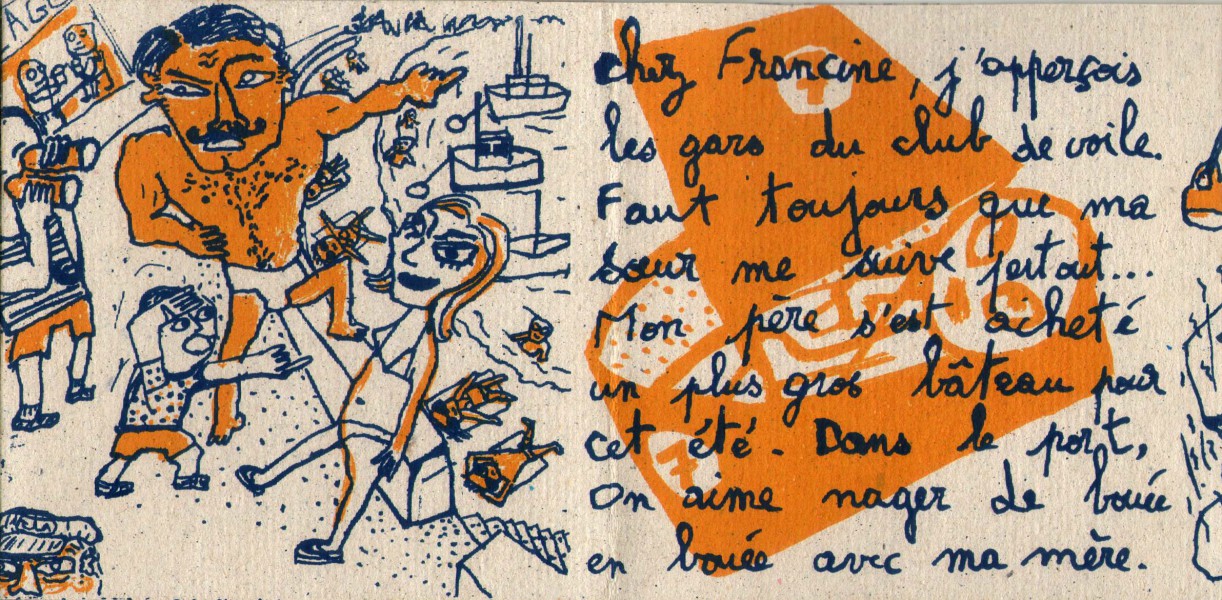 AGE
chez Francine, j'apperçois
les gars du club de voile.
Faut toujours que ma
sœur me suive partout...
Mon père s'est acheté
un plus gros bâteau pour
cet été. Dans le port,
On aime nager de bouée
en bouée avec ma mère.